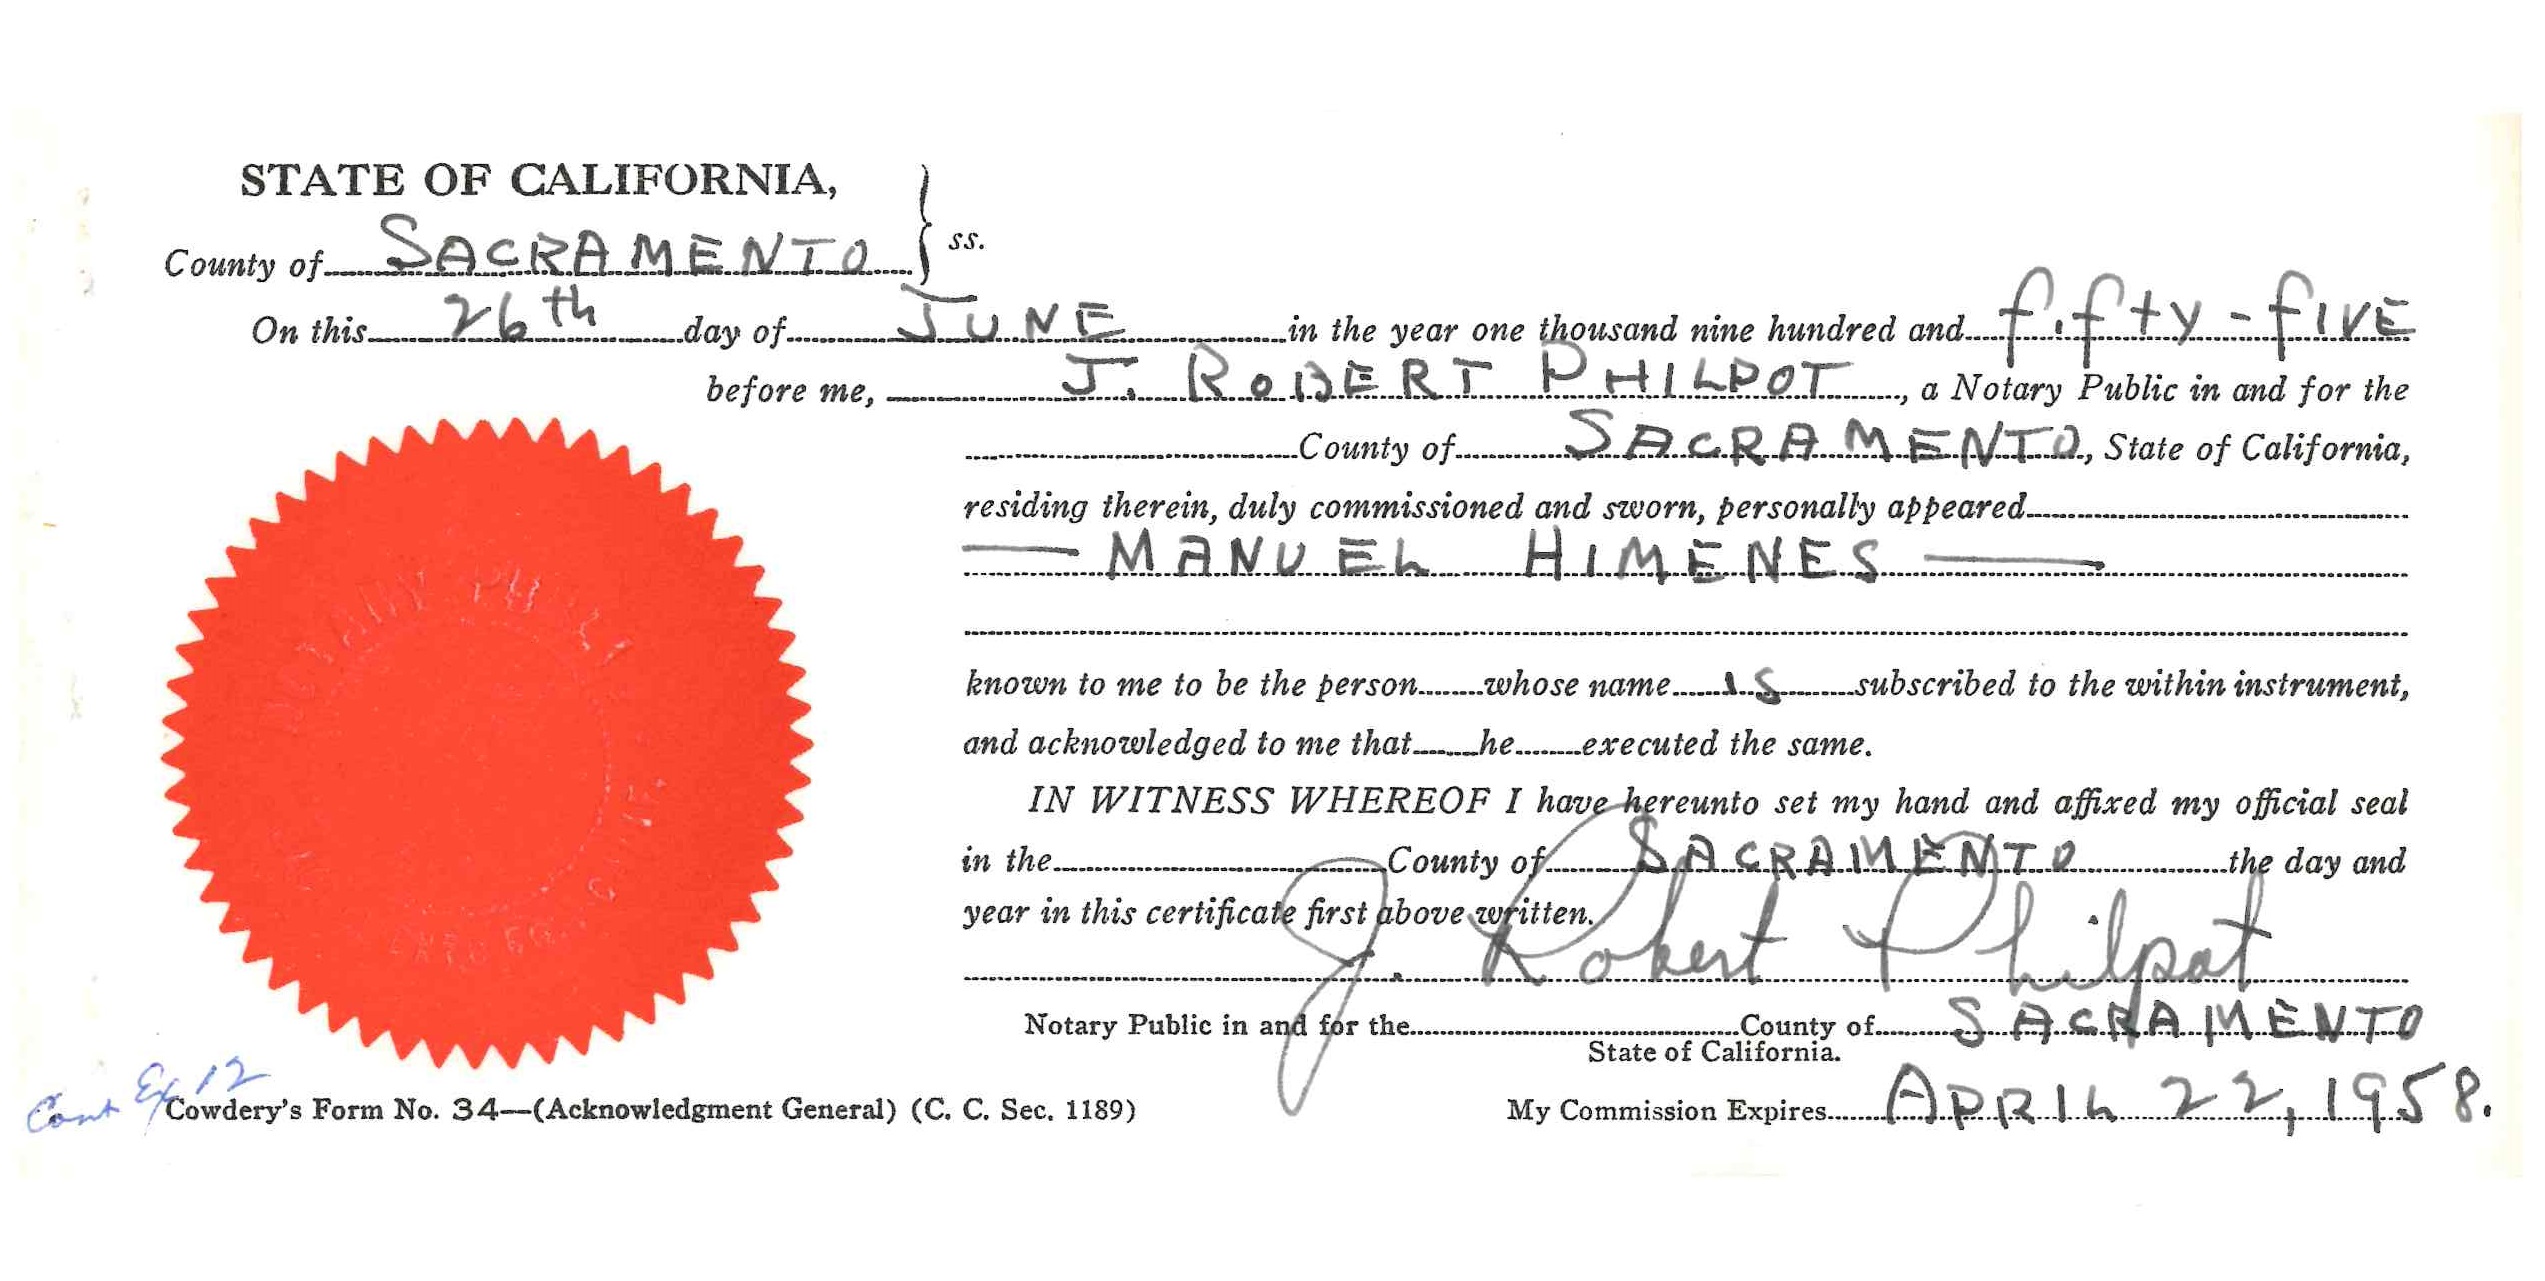 STATE OF CALIFORNIA,
County of SACRAMENTO } ss.
On this 26th day of JUNE in the year one thousand nine hundred and fifty-fIVE
before me, J. ROBERT PHILPOT, a Notary Public in and for the
County of SACRAMENTO, State of California,
residing therein, duly commissioned and sworn, personally appeared
— MANUEL HIMENES —
known to me to be the person whose name is subscribed to the within instrument,
and acknowledged to me that he executed the same.
IN WITNESS WHEREOF I have hereunto set my hand and affixed my official seal
in the County of SACRAMENTO the day and
year in this certificate first above written.
J. Robert Philpot
Notary Public in and for the County of SACRAMENTO
State of California.
Cont Ex 12
Cowdery's Form No. 34—(Acknowledgment General) (C. C. Sec. 1189)
My Commission Expires APRIL 22, 1958.